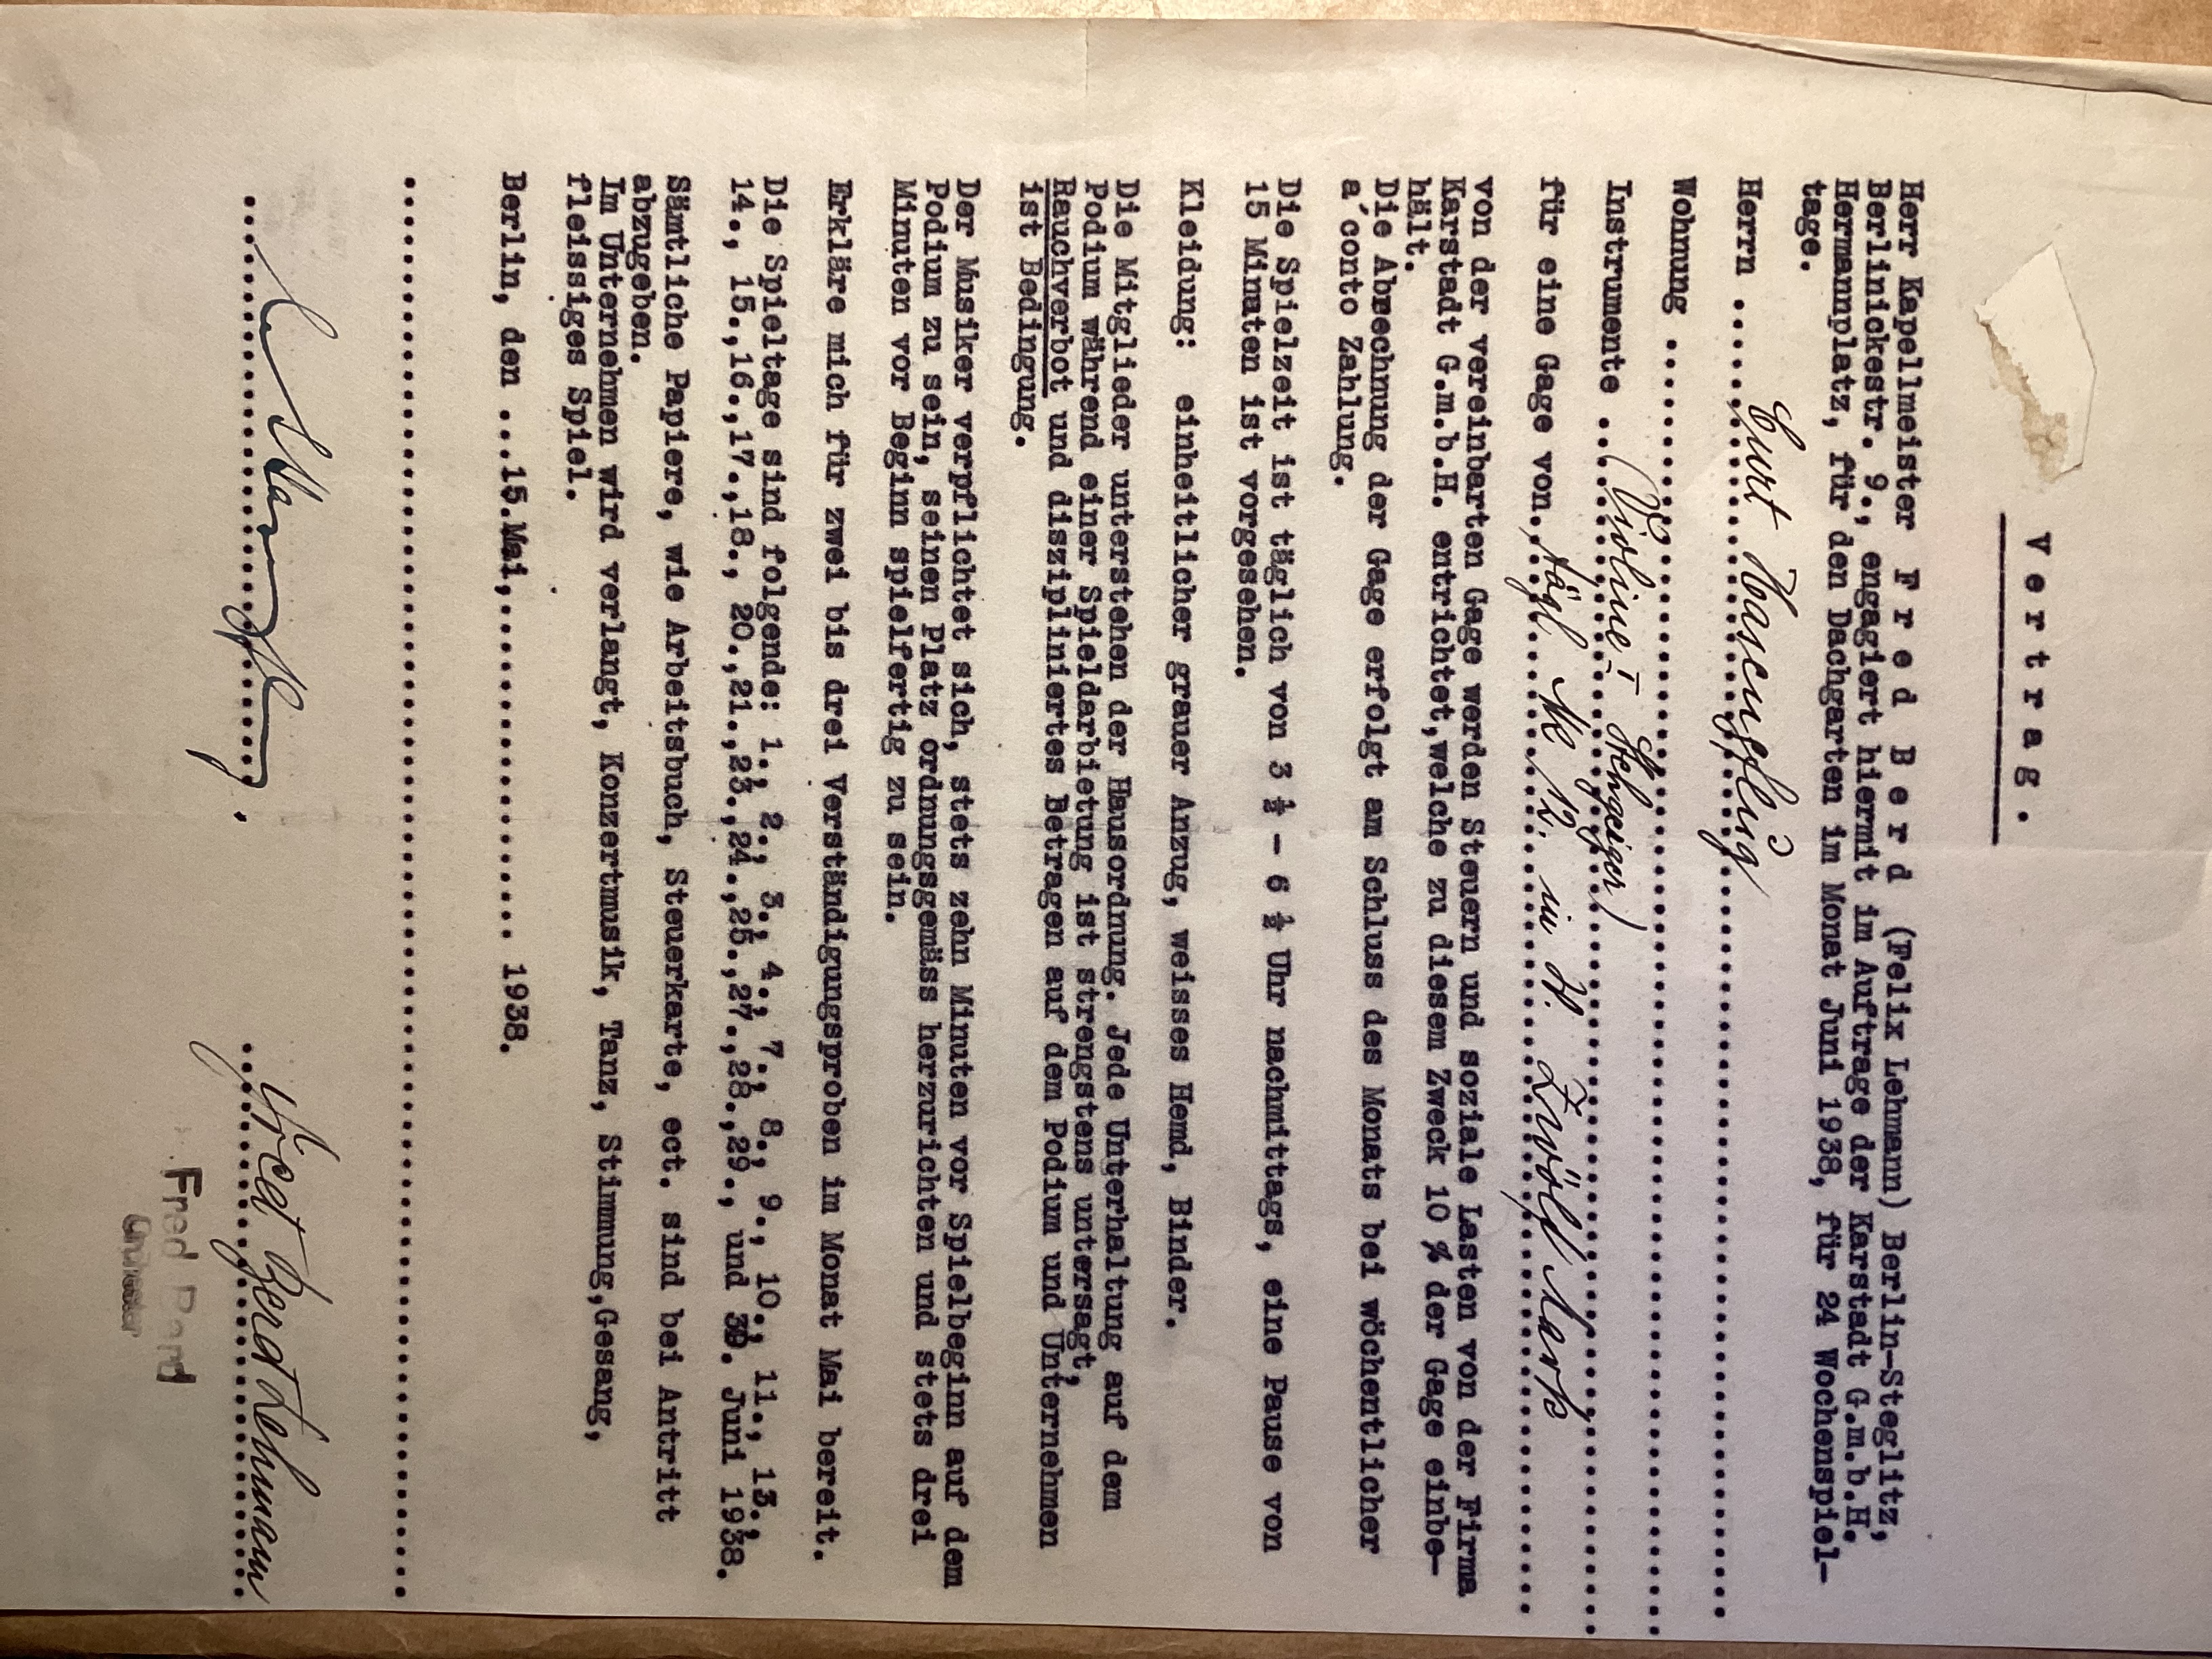 V e r t r a g .
Herr Kapellmeister F r e d B e r d (Felix Lehmann) Berlin-Steglitz,
Berlinickestr. 9., engagiert hiermit im Auftrage der Karstadt G.m.b.H.
Hermannplatz, für den Dachgarten im Monat Juni 1938, für 24 Wochenspiel-
tage.
Herrn ..... Curt Hasenpflug
Wohnung .....
Instrumente ... (Violine - Stehgeiger)
für eine Gage von. tägl Mk 12. in W. Zwölf Mark
von der vereinbarten Gage werden Steuern und soziale Lasten von der Firma
Karstadt G.m.b.H. entrichtet,welche zu diesem Zweck 10 % der Gage einbe-
hält.
Die Abrechnung der Gage erfolgt am Schluss des Monats bei wöchentlicher
a'conto Zahlung.
Die Spielzeit ist täglich von 3 ½ - 6 ½ Uhr nachmittags, eine Pause von
15 Minuten ist vorgesehen.
Kleidung: einheitlicher grauer Anzug, weisses Hemd, Binder.
Die Mitglieder unterstehen der Hausordnung. Jede Unterhaltung auf dem
Podium während einer Spieldarbietung ist strengstens untersagt,
Rauchverbot und diszipliniertes Betragen auf dem Podium und Unternehmen
ist Bedingung.
Der Musiker verpflichtet sich, stets zehn Minuten vor Spielbeginn auf dem
Podium zu sein, seinen Platz ordnungsgemäss herzurichten und stets drei
Minuten vor Beginn spielfertig zu sein.
Erkläre mich für zwei bis drei Verständigungsproben im Monat Mai bereit.
Die Spieltage sind folgende: 1., 2., 3., 4., 7., 8., 9., 10., 11., 13.,
14., 15.,16.,17.,18., 20.,21.,23.,24.,25.,27.,28.,29., und 30. Juni 1938.
Sämtliche Papiere, wie Arbeitsbuch, Steuerkarte, ect. sind bei Antritt
abzugeben.
Im Unternehmen wird verlangt, Konzertmusik, Tanz, Stimmung,Gesang,
fleissiges Spiel.
Berlin, den ...15.Mai,.................. 1938.
Fred Berd Lehmann
Fred Berd
Orchester